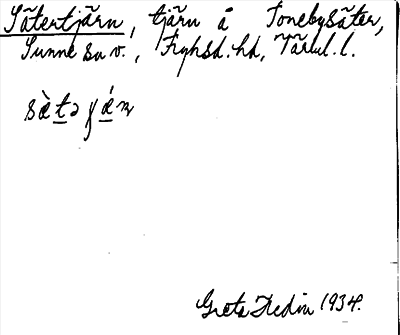 Sätertjärn, tjärn å Tonebysäter,
Sunne sn v., Fryksd. hd, Värml. l.
Greta Hedin 1934.